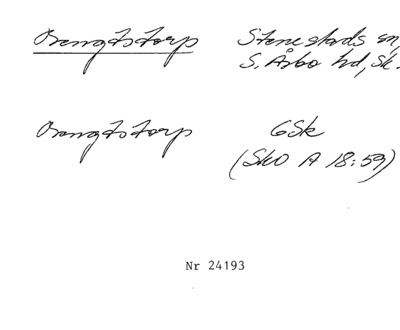 Bengtstorp Stenestads sn,
S. Åsbo hd, Sk.
Bengtstorp GSk
(SkO A 18:59)
Nr 24193